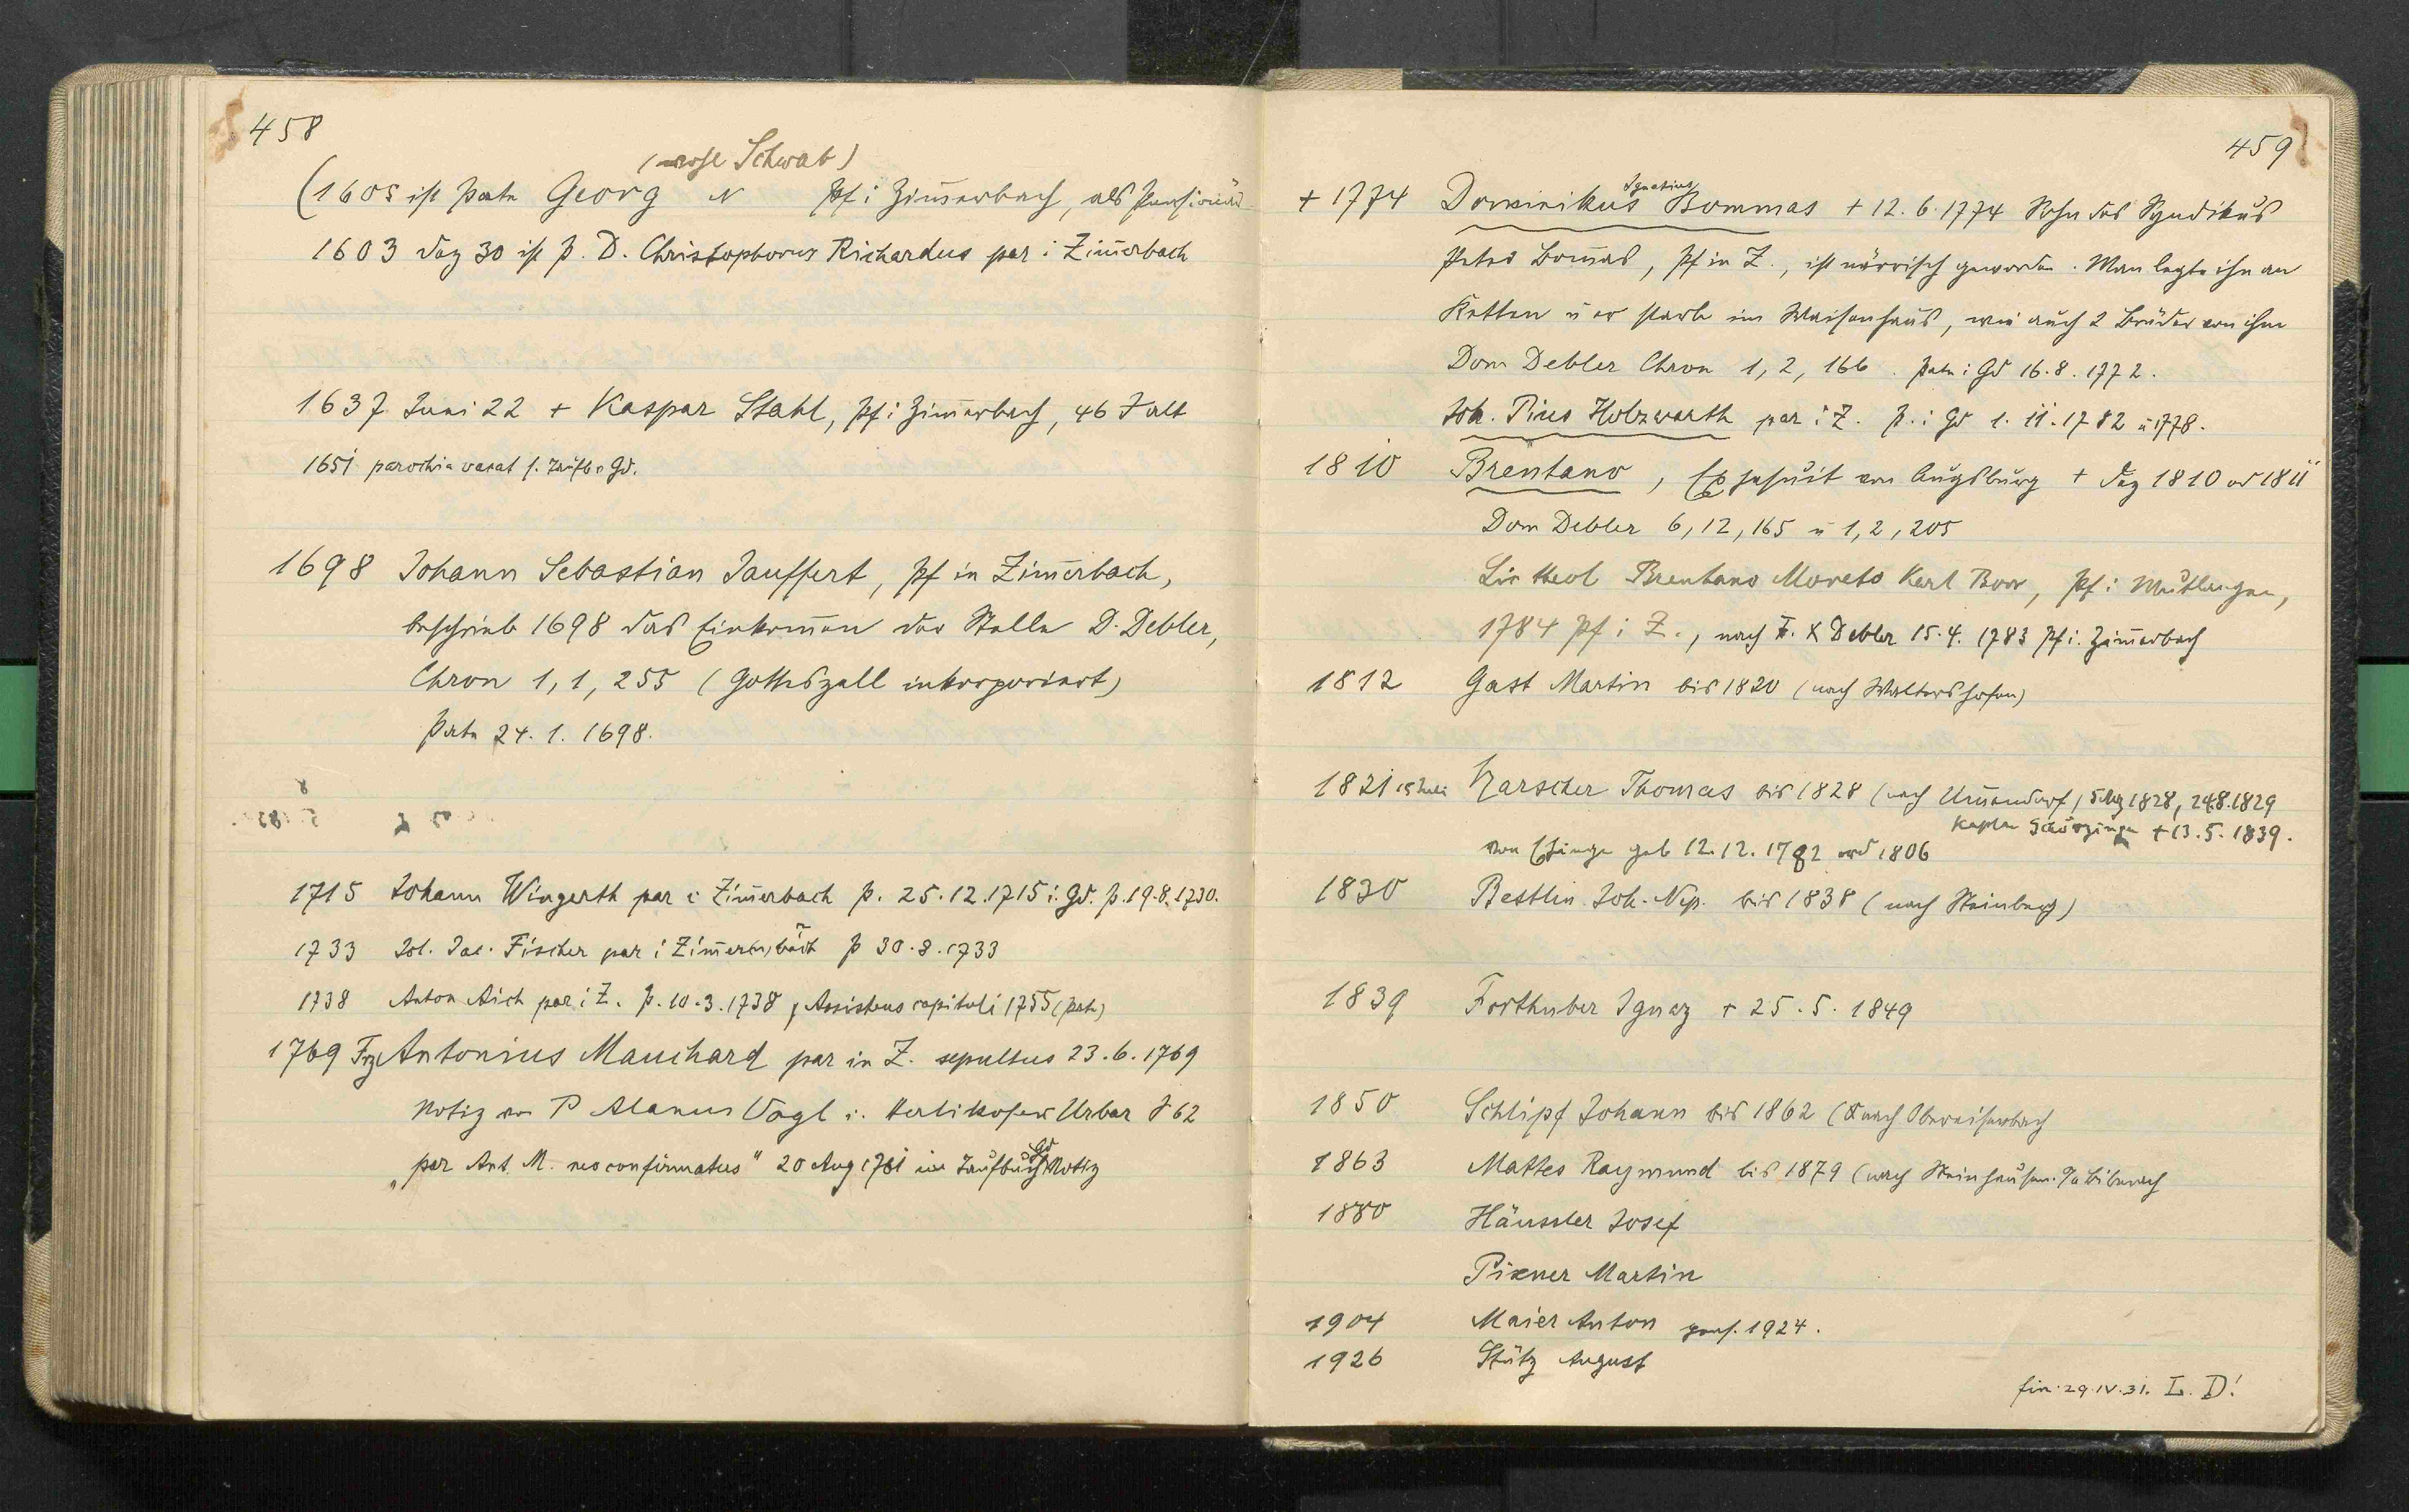 458
(wohl Schwab)
(1605 ist Pate Georg N Pf i Zim̄erbach, als Pensionär
1603 Dez 30 ist p. D. Christophorus Richardus par i Zim̄erbach
1637 Juni 22 + Kaspar Stahl, Pf i Zim̄erbach, 46 J alt
1651 parochia vacat s. Taufb. Gd.
1698 Johann Sebastian Jauffert, Pf in Zim̄erbach,
beschrieb 1698 das Einkom̄en der Stelle D. Debler,
Chron 1, 1, 255 (Gotteszell inkorporiert)
Pate 24. 1. 1698.
1715 Johann Wingerth par i Zim̄erbach p. 25.12.1715 i. Gd. p. 19.8.1730.
1733 Joh. Jac. Fischer par i Zim̄erbach p 30.8.1733
1738 Anton Aich par i Z. p. 10.3.1738, Assistens capituli 1755 (pate)
1769 Frz Antonius Mauchard par in Z. sepultus 23.6.1769
Notiz von P Alanus Vogl i. Herlikofer Urbar S 62
„par Ant. M. neoconfirmatus" 20 Aug 1761 im Taufbuch Gd Notiz
459
+ 1774 Dominikus Ignatius Bommas + 12.6.1774 Sohn des Syndikus
Peter Bom̄as, Pf in Z., ist närrisch geworden. Man legte ihn an
Ketten u er starb im Waisenhaus, wie auch 2 Brüder von ihm
Dom Debler Chron 1, 2, 166. Pate i Gd 16.8.1772.
Joh. Pius Holzwarth par i Z. p. i Gd 1.11.1782 u 1778.
1810 Brentano, Exjesuit von Augsburg + Dez 1810 od 1811
Dom Debler 6, 12, 165 u 1, 2, 205
Lic theol Brentano Moreto Karl Borr, Pf i Mutlangen,
1784 Pf i Z., nach F. X Debler 15.4.1783 Pf i. Zim̄erbach
1812 Gast Martin bis 1820 (nach Waltershofen)
1821 15 Juli Harscher Thomas bis 1828 (nach Um̄endorf, 5 Aug 1828, 24.8.1829
Kaplan Schörzingen + 13.5.1839.
von Ehingen geb 12.12.1782 ord 1806
1830 Bestlin Joh. Nep. bis 1838 (nach Steinberg)
1839 Forthuber Ignaz + 25.5.1849
1850 Schlipf Johann bis 1862 (nach Oberreifenbach
1863 Mattes Raymund bis 1879 (nach Steinhausen. OA Biberach
1880 Häussler Josef
Pixner Martin
1904 Maier Anton pens. 1924.
1926 Stütz August
fin. 29.IV.31. L. D!